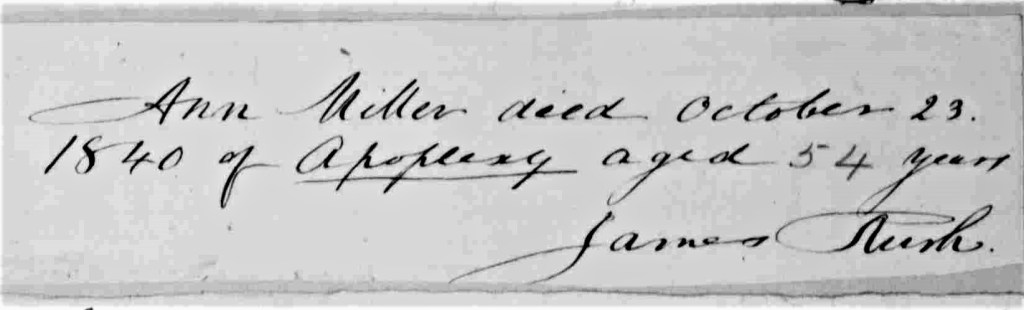 Ann Miller died October 23.
1840 of Apoplexy aged 54 years
James Rush.